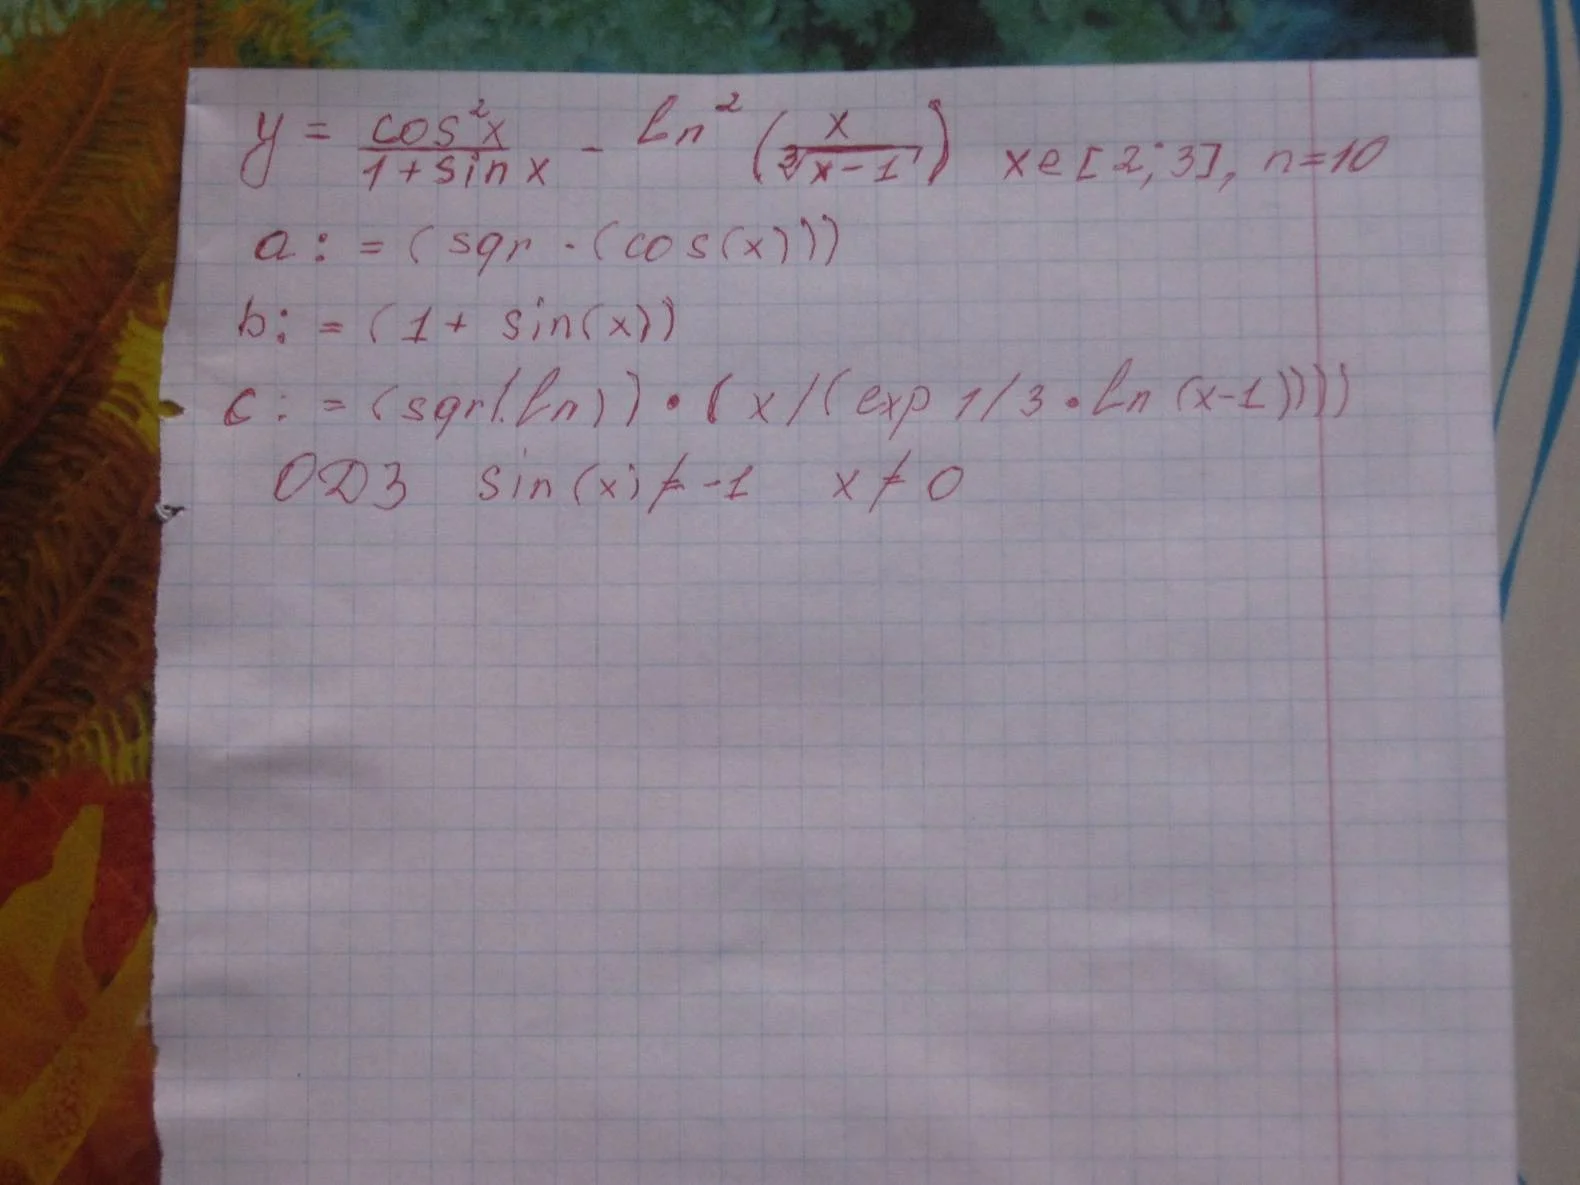 y = cos²x / 1+sin x - ln² (x / ∛x-1) x e [2; 3], n=10
a: = (sqr · (cos(x)))
b: = (1 + sin(x))
c: = (sqr(.ln)) · (x/(exp 1/3 · ln (x-1))))
ОДЗ sin(x) ≠ -1 x ≠ 0